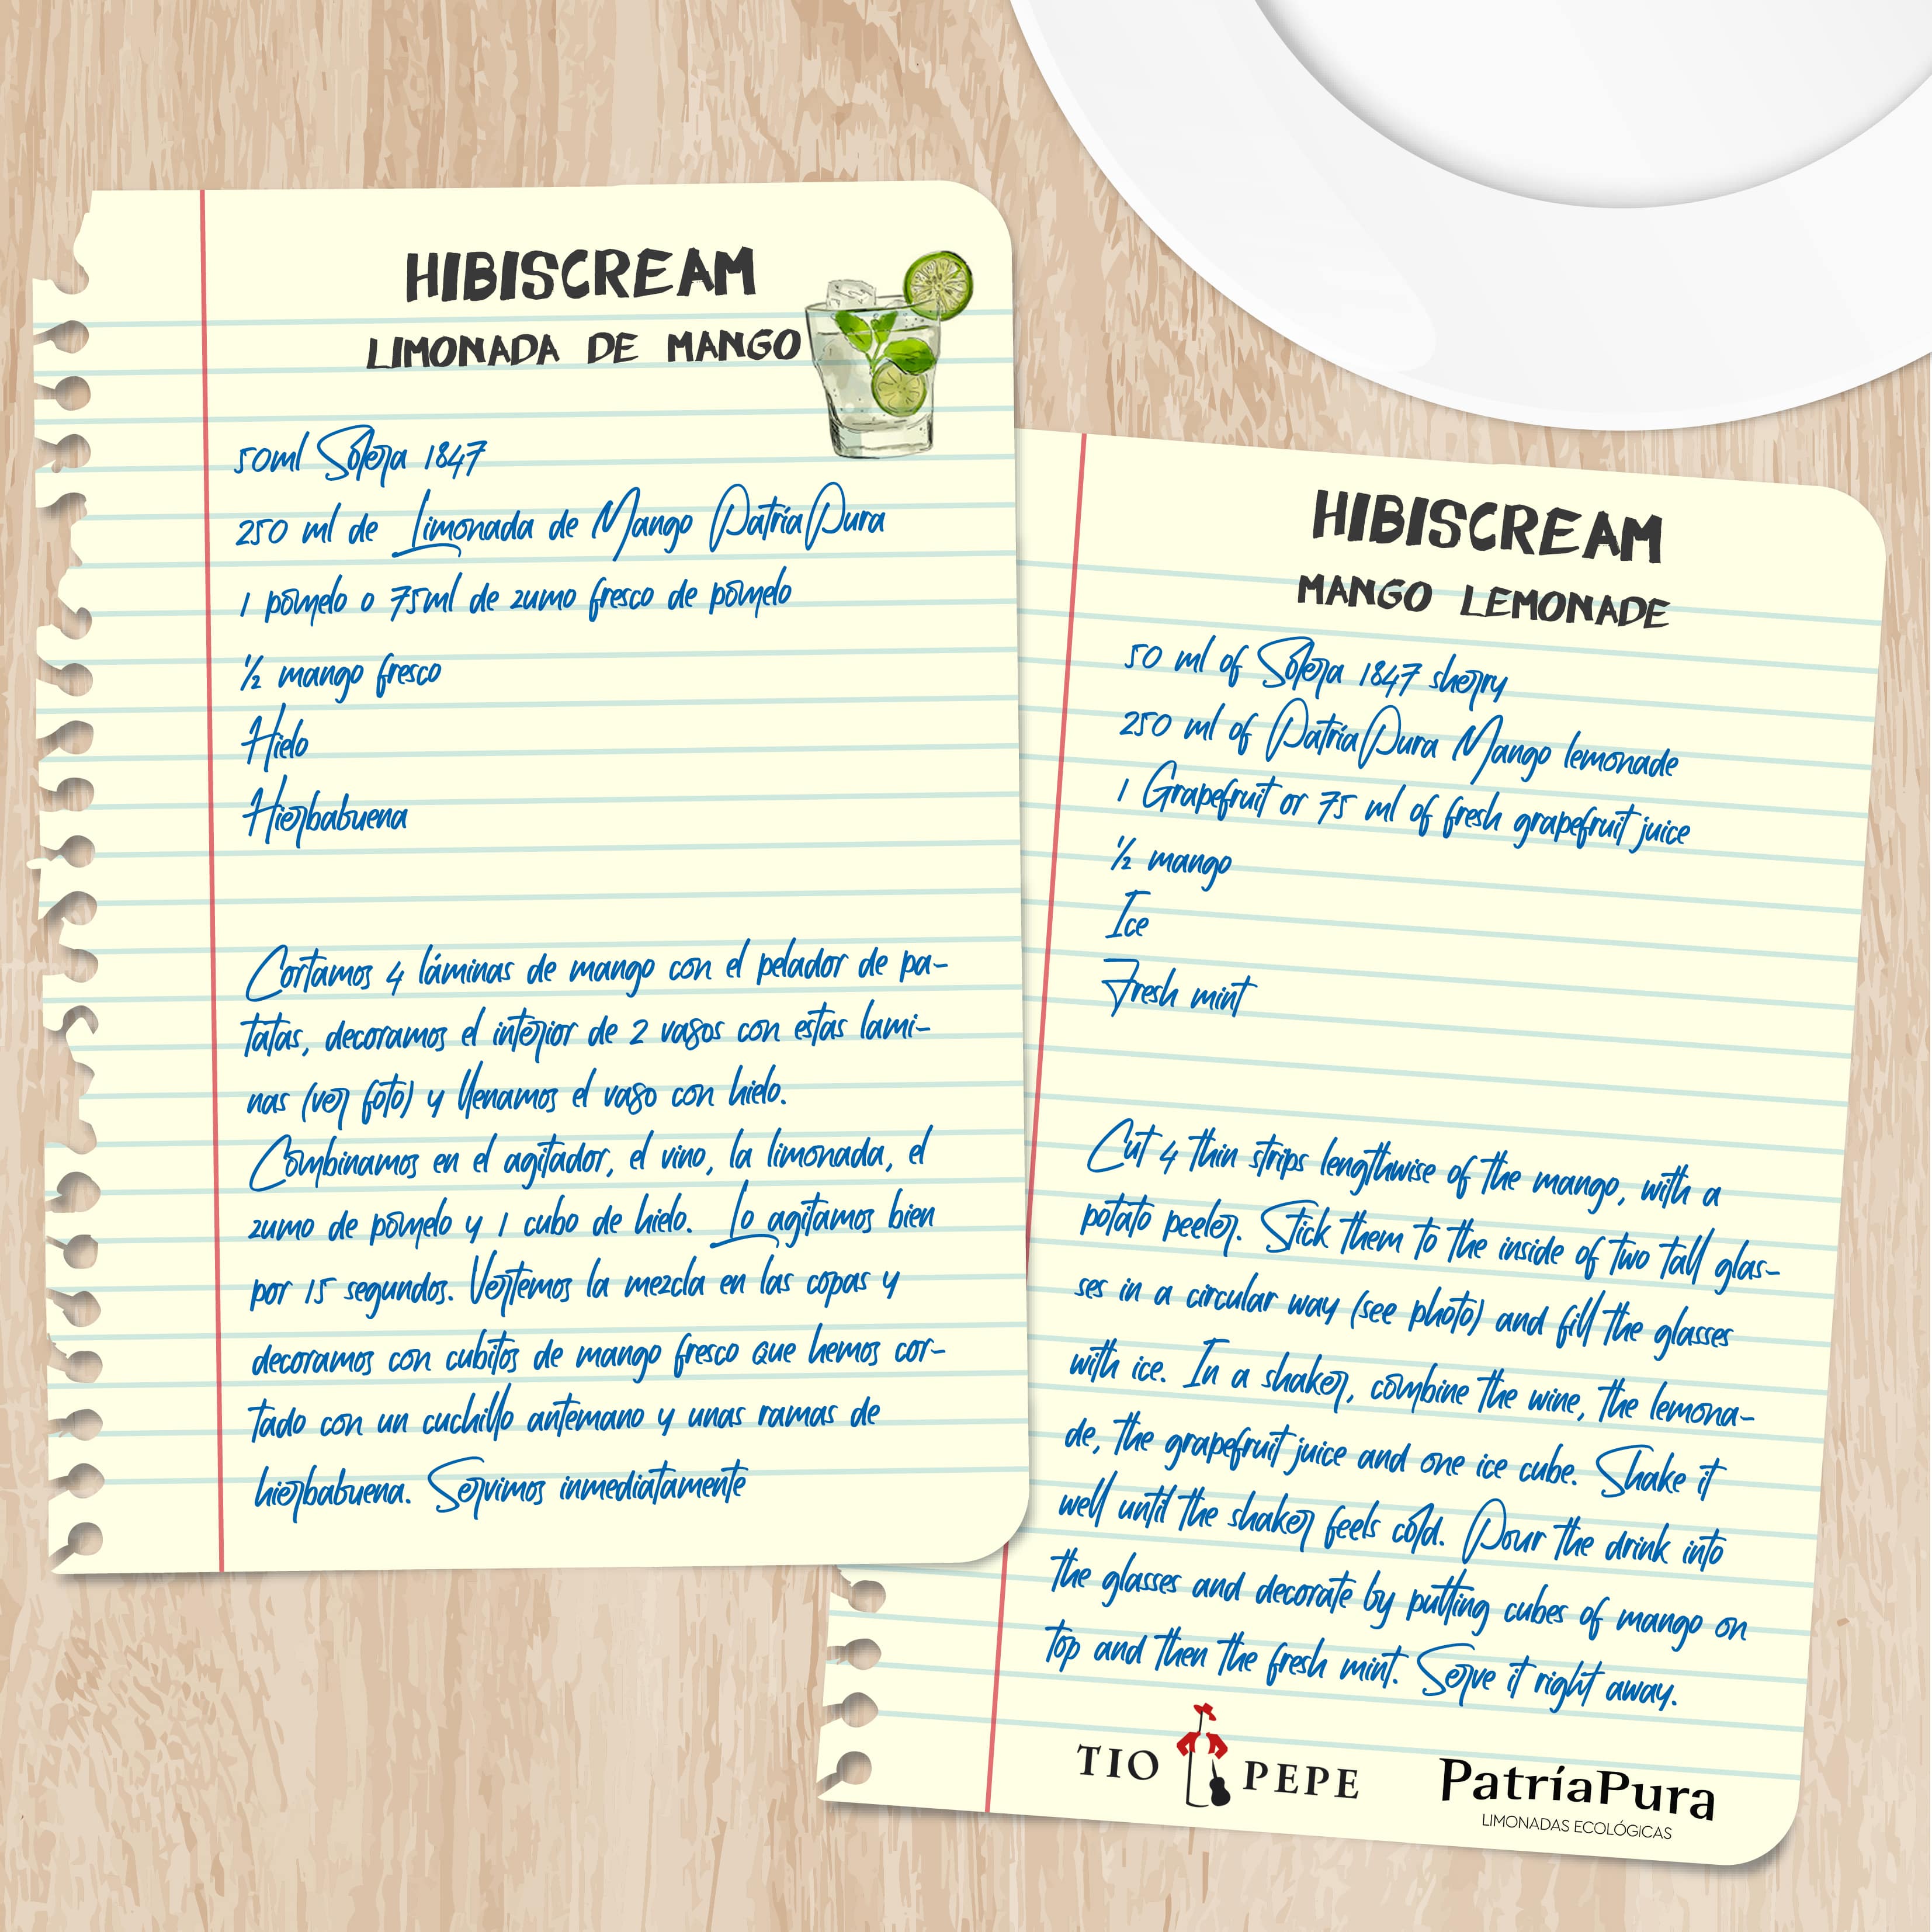 HIBISCREAM
LIMONADA DE MANGO
50ml Solera 1847
250 ml de Limonada de Mango PatríaPura
1 pomelo o 75ml de zumo fresco de pomelo
½ mango fresco
Hielo
Hierbabuena
Cortamos 4 láminas de mango con el pelador de pa-
tatas, decoramos el interior de 2 vasos con estas lami-
nas (ver foto) y llenamos el vaso con hielo.
Combinamos en el agitador, el vino, la limonada, el
zumo de pomelo y 1 cubo de hielo. Lo agitamos bien
por 15 segundos. Vertemos la mezcla en las copas y
decoramos con cubitos de mango fresco que hemos cor-
tado con un cuchillo antemano y unas ramas de
hierbabuena. Servimos inmediatamente
HIBISCREAM
MANGO LEMONADE
50 ml of Solera 1847 sherry
250 ml of PatríaPura Mango lemonade
1 Grapefruit or 75 ml of fresh grapefruit juice
½ mango
Ice
Fresh mint
Cut 4 thin strips lengthwise of the mango, with a
potato peeler. Stick them to the inside of two tall glas-
ses in a circular way (see photo) and fill the glasses
with ice. In a shaker, combine the wine, the lemona-
de, the grapefruit juice and one ice cube. Shake it
well until the shaker feels cold. Pour the drink into
the glasses and decorate by putting cubes of mango on
top and then the fresh mint. Serve it right away.
TIO PEPE
PatríaPura
LIMONADAS ECOLÓGICAS